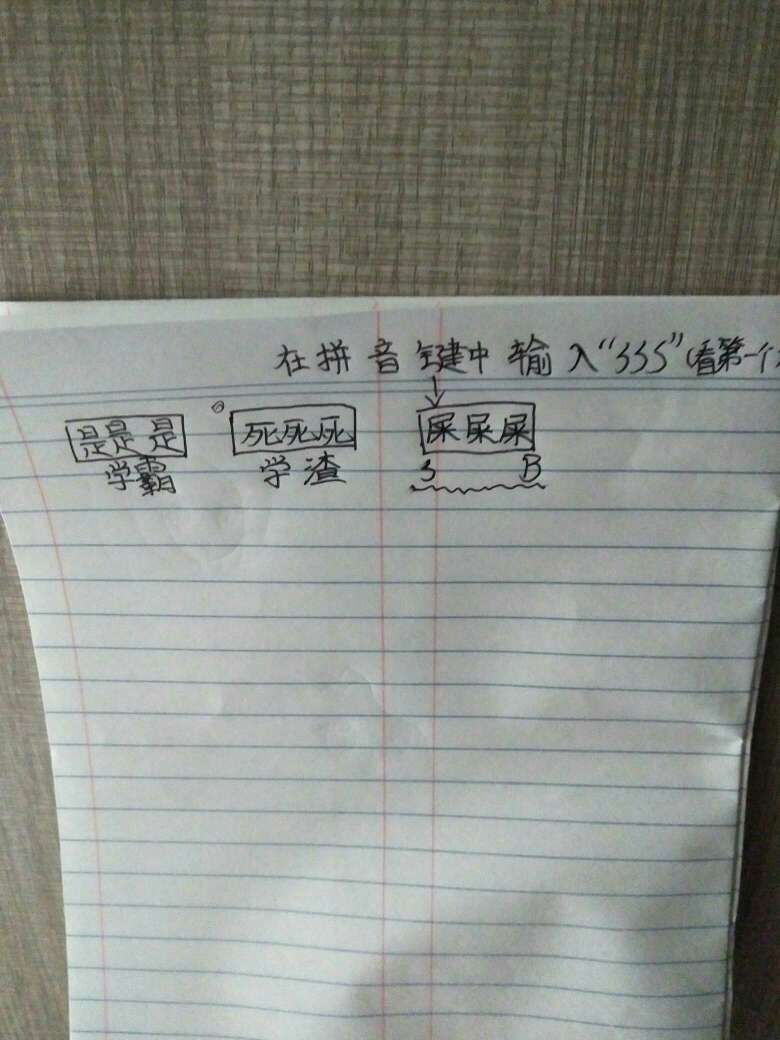 在拼音键中输入“SSS”(看第一个
是是是 死死死 屎屎屎
学霸 学渣 SB